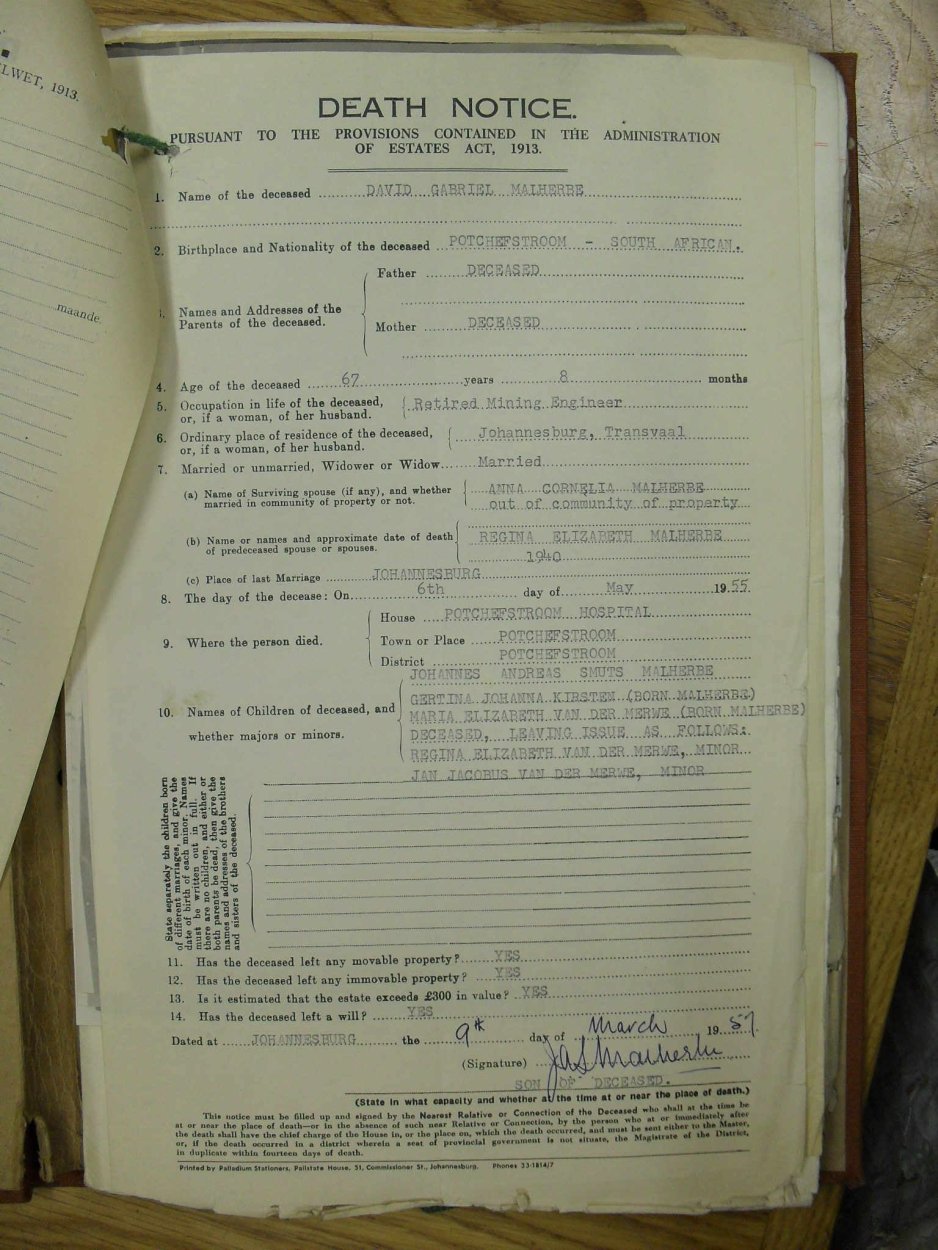 LWET, 1913.
maande.
DEATH NOTICE.
PURSUANT TO THE PROVISIONS CONTAINED IN THE ADMINISTRATION
OF ESTATES ACT, 1913.
1. Name of the deceased DAVID GABRIEL MALHERBE
2. Birthplace and Nationality of the deceased POTCHEFSTROOM - SOUTH AFRICAN.
Father DECEASED
3. Names and Addresses of the
Parents of the deceased.
Mother DECEASED
4. Age of the deceased 67 years 8 months
5. Occupation in life of the deceased,
or, if a woman, of her husband. Retired Mining Engineer
6. Ordinary place of residence of the deceased,
or, if a woman, of her husband. Johannesburg, Transvaal
7. Married or unmarried, Widower or Widow Married
(a) Name of Surviving spouse (if any), and whether
married in community of property or not. ANNA CORNELIA MALHERBE
out of community of property
(b) Name or names and approximate date of death
of predeceased spouse or spouses. REGINA ELIZABETH MALHERBE
1940
(c) Place of last Marriage JOHANNESBURG
8. The day of the decease: On 6th day of May 1955
House POTCHEFSTROOM HOSPITAL
9. Where the person died. Town or Place POTCHEFSTROOM
District POTCHEFSTROOM
JOHANNES ANDREAS SMUTS MALHERBE
GERTINA JOHANNA KIRSTEN (BORN MALHERBE)
10. Names of Children of deceased, and MARIA ELIZABETH VAN DER MERWE (BORN MALHERBE)
whether majors or minors. DECEASED, LEAVING ISSUE AS FOLLOWS:
REGINA ELIZABETH VAN DER MERWE, MINOR
JAN JACOBUS VAN DER MERWE, MINOR
State separately the children born
of different marriages, and give the
date of birth of each minor. Names
must be written out in full. If
there are no children, and either or
both parents be dead, then give the
names and addresses of the brothers
and sisters of the deceased.
11. Has the deceased left any movable property? YES
12. Has the deceased left any immovable property? YES
13. Is it estimated that the estate exceeds £300 in value? YES
14. Has the deceased left a will? YES
Dated at JOHANNESBURG the 9th day of March 1957.
(Signature) JAS Malherbe
SON OF DECEASED.
(State in what capacity and whether at the time at or near the place of death.)
This notice must be filled up and signed by the Nearest Relative or Connection of the Deceased who shall at the time be
at or near the place of death—or in the absence of such near Relative or Connection, by the person who at or immediately after
the death shall have the chief charge of the House in, or the place on, which the death occurred, and must be sent either to the Master,
or, if the death occurred in a district wherein a seat of provincial government is not situate, the Magistrate of the District,
in duplicate within fourteen days of death.
Printed by Palladium Stationers, Pallstate House, 51, Commissioner St., Johannesburg. Phones 33-1814/7